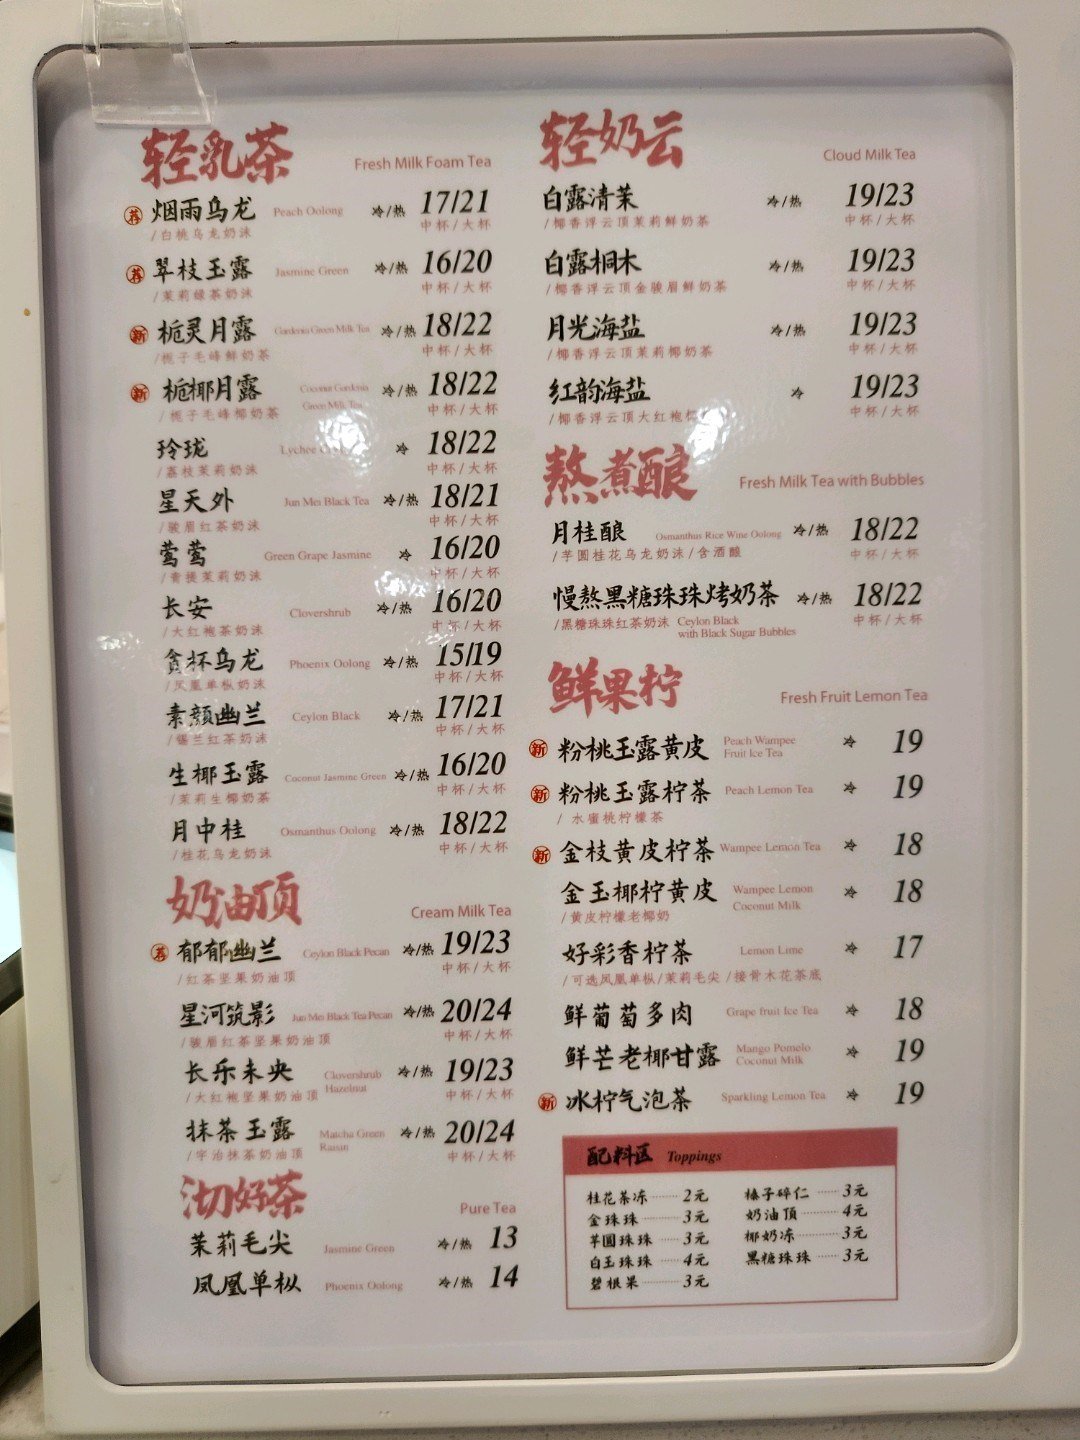 轻乳茶 Fresh Milk Foam Tea
荐 烟雨乌龙 Peach Oolong 冷/热 17/21
/白桃乌龙奶沫 中杯/大杯
荐 翠枝玉露 Jasmine Green 冷/热 16/20
/茉莉绿茶奶沫 中杯/大杯
新 栀灵月露 Gardenia Green Milk Tea 冷/热 18/22
/栀子毛峰鲜奶茶 中杯/大杯
新 栀椰月露 Coconut Gardenia Green Milk Tea 冷/热 18/22
/栀子毛峰椰奶茶 中杯/大杯
玲珑 Lychee 冷 18/22
/荔枝茉莉奶沫 中杯/大杯
星天外 Jun Mei Black Tea 冷/热 18/21
/骏眉红茶奶沫 中杯/大杯
莺莺 Green Grape Jasmine 冷 16/20
/青提茉莉奶沫 中杯/大杯
长安 Clovershrub 冷/热 16/20
/大红袍茶奶沫 中杯/大杯
贪杯乌龙 Phoenix Oolong 冷/热 15/19
/凤凰单枞奶沫 中杯/大杯
素颜幽兰 Ceylon Black 冷/热 17/21
/锡兰红茶奶沫 中杯/大杯
生椰玉露 Coconut Jasmine Green 冷/热 16/20
/茉莉生椰奶茶 中杯/大杯
月中桂 Osmanthus Oolong 冷/热 18/22
/桂花乌龙奶沫 中杯/大杯
奶油顶 Cream Milk Tea
荐 郁郁幽兰 Ceylon Black Pecan 冷/热 19/23
/红茶坚果奶油顶 中杯/大杯
星河筑影 Jun Mei Black Tea Pecan 冷/热 20/24
/骏眉红茶坚果奶油顶 中杯/大杯
长乐未央 Clovershrub Hazelnut 冷/热 19/23
/大红袍坚果奶油顶 中杯/大杯
抹茶玉露 Matcha Green Raisin 冷/热 20/24
/宇治抹茶奶油顶 中杯/大杯
沏好茶 Pure Tea
茉莉毛尖 Jasmine Green 冷/热 13
凤凰单枞 Phoenix Oolong 冷/热 14
轻奶云 Cloud Milk Tea
白露清茉 冷/热 19/23
/椰香浮云顶茉莉鲜奶茶 中杯/大杯
白露桐木 冷/热 19/23
/椰香浮云顶金骏眉鲜奶茶 中杯/大杯
月光海盐 冷/热 19/23
/椰香浮云顶茉莉椰奶茶 中杯/大杯
红韵海盐 冷 19/23
/椰香浮云顶大红袍 中杯/大杯
熬煮酿 Fresh Milk Tea with Bubbles
月桂酿 Osmanthus Rice Wine Oolong 冷/热 18/22
/芋圆桂花乌龙奶沫/含酒酿 中杯/大杯
慢熬黑糖珠珠烤奶茶 冷/热 18/22
/黑糖珠珠红茶奶沫 Ceylon Black with Black Sugar Bubbles 中杯/大杯
鲜果柠 Fresh Fruit Lemon Tea
新 粉桃玉露黄皮 Peach Wampee Fruit Ice Tea 冷 19
新 粉桃玉露柠茶 Peach Lemon Tea 冷 19
/ 水蜜桃柠檬茶
新 金枝黄皮柠茶 Wampee Lemon Tea 冷 18
金玉椰柠黄皮 Wampee Lemon Coconut Milk 冷 18
/黄皮柠檬老椰奶
好彩香柠茶 Lemon Lime 冷 17
/可选凤凰单枞/茉莉毛尖 /接骨木花茶底
鲜葡萄多肉 Grape fruit Ice Tea 冷 18
鲜芒老椰甘露 Mango Pomelo Coconut Milk 冷 19
新 冰柠气泡茶 Sparkling Lemon Tea 冷 19
配料区 Toppings
桂花茶冻 ······· 2元 榛子碎仁 ······ 3元
金珠珠 ·········· 3元 奶油顶 ·········· 4元
芋圆珠珠 ······ 3元 椰奶冻 ·········· 3元
白玉珠珠 ······ 4元 黑糖珠珠 ······ 3元
碧根果 ·········· 3元